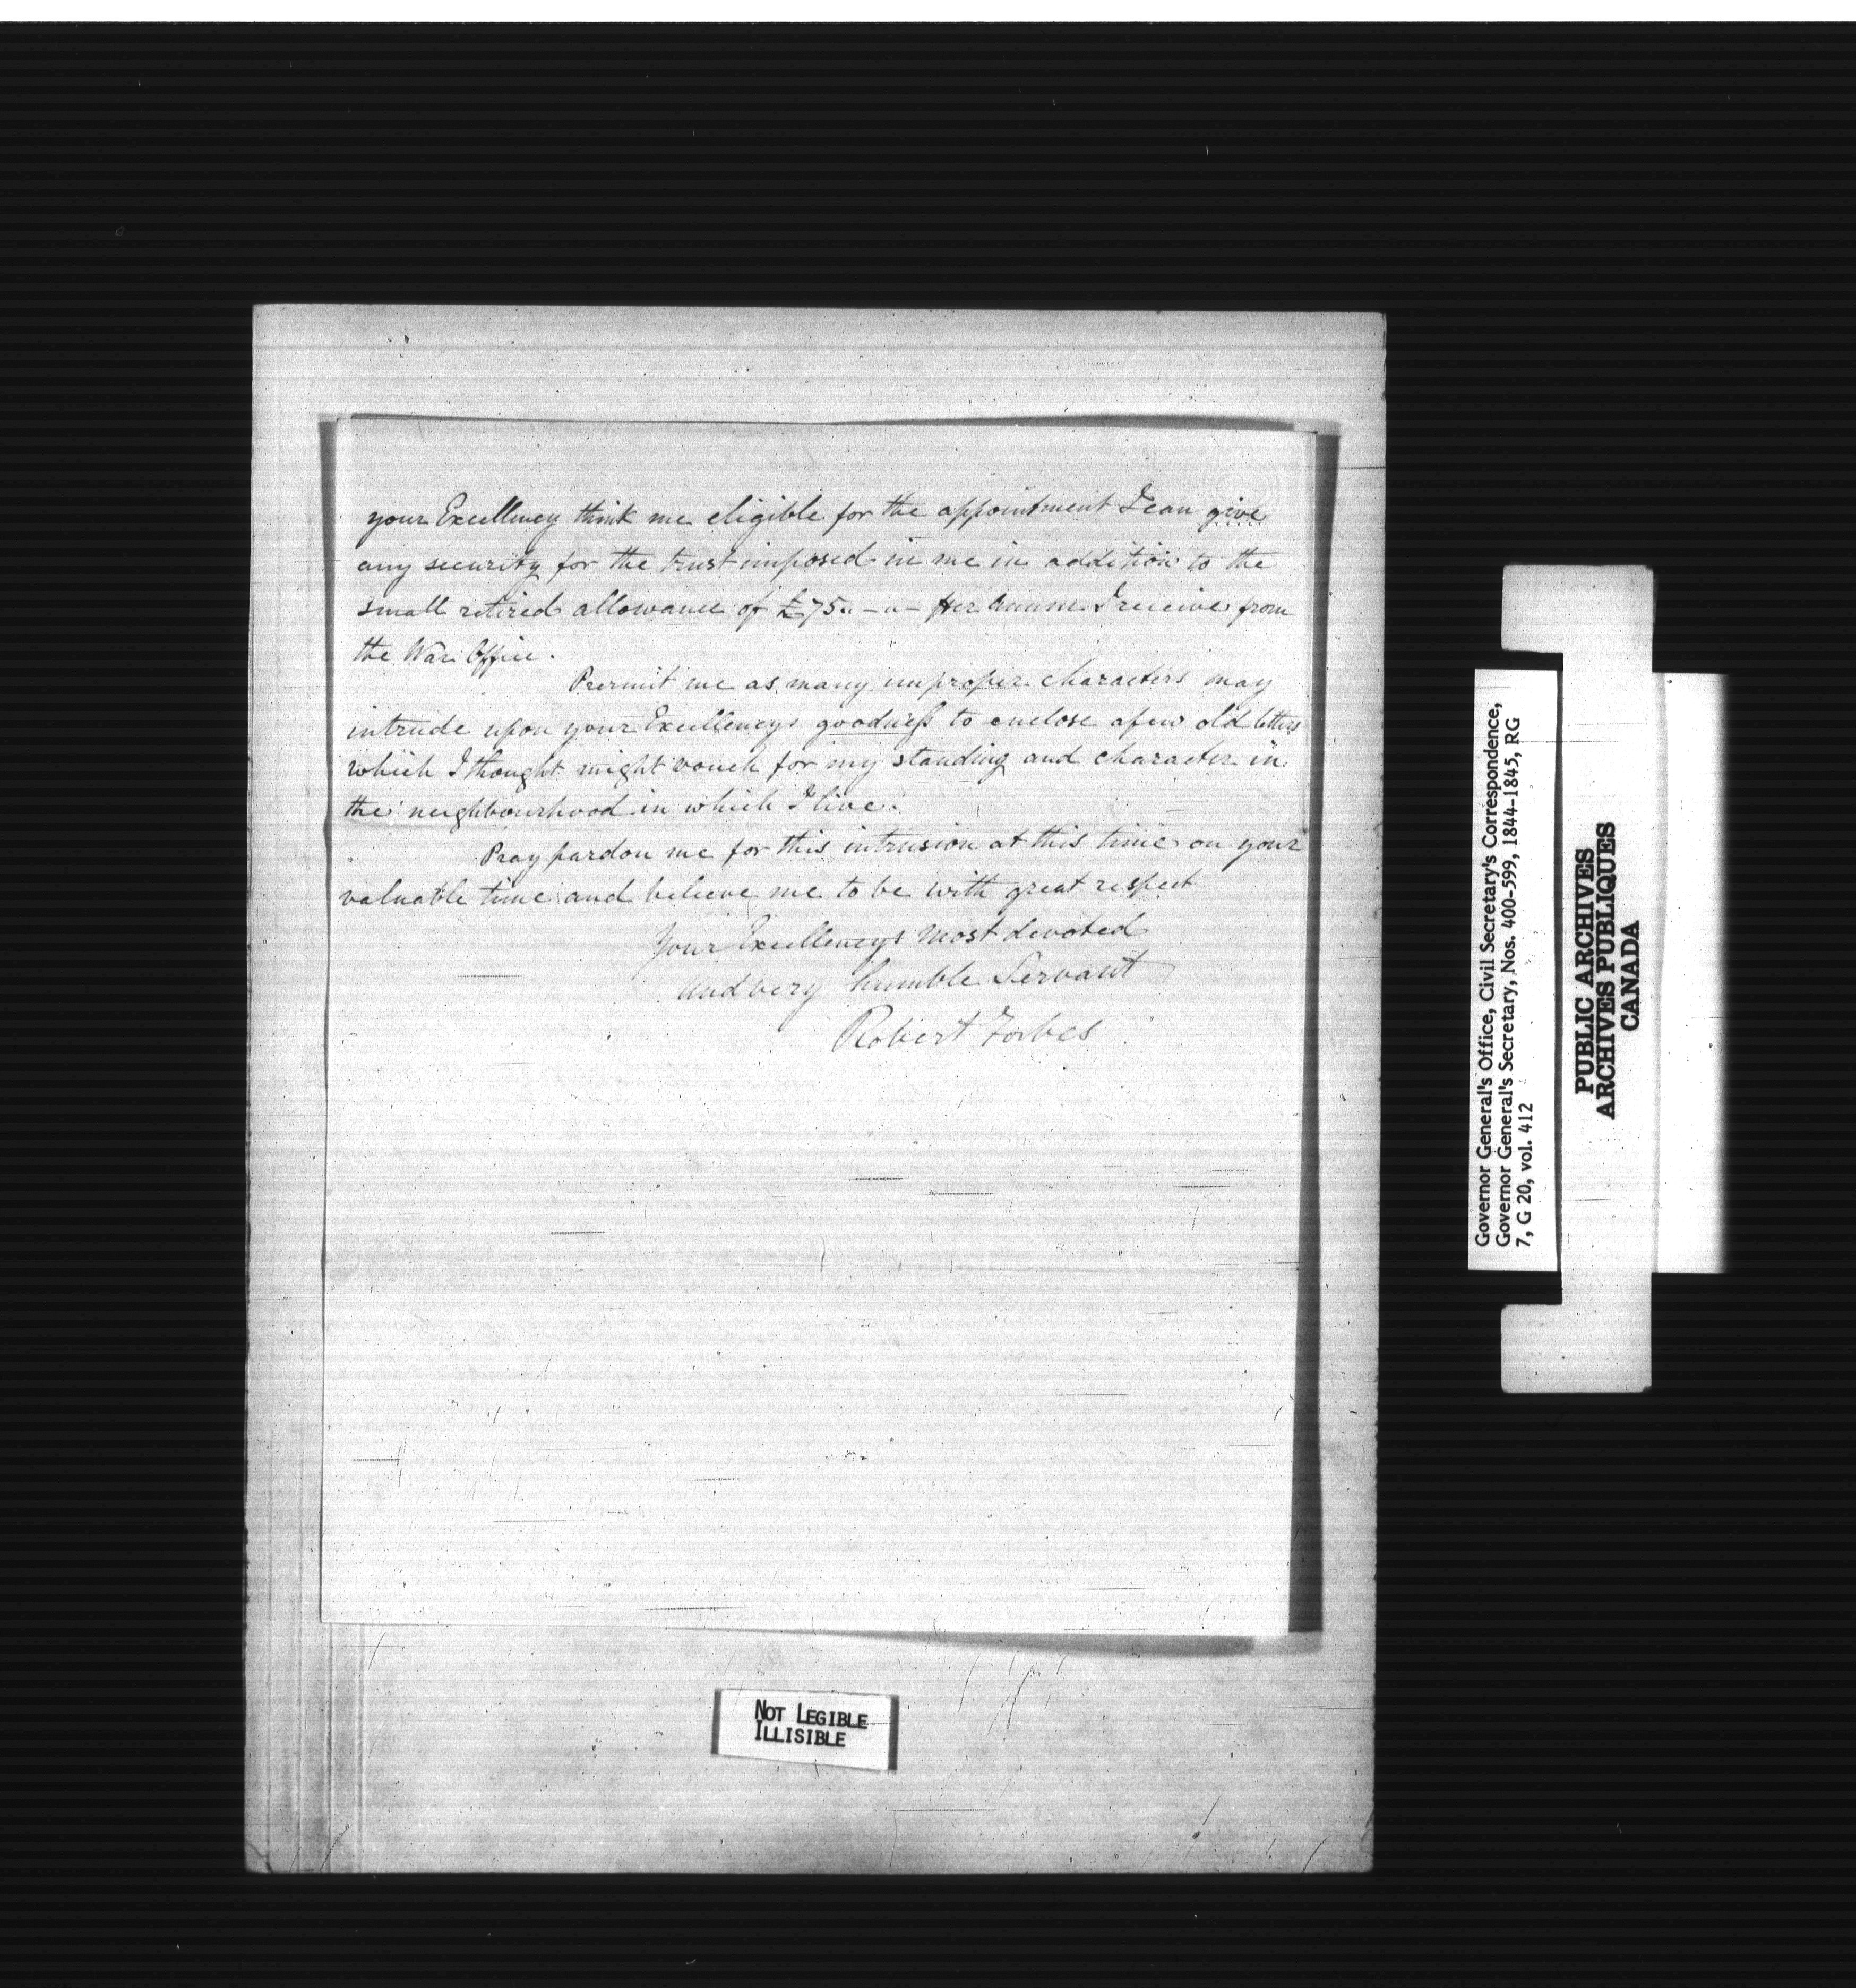 your Excellency think me eligible for the appointment I can give
any security for the trust imposed in me in addition to the
small retired allowance of £75 „ – „ – per Annum I receive from
the War Office.
Permit me as many improper characters may
intrude upon your Excellencys goodness to enclose a few old letters
which I thought might vouch for my standing and character in
the neighbourhood in which I live.
Pray pardon me for this intrusion at this time on your
valuable time and believe me to be with great respect
Your Excellencys most devoted
and very humble Servant
Robert Forbes
NOT LEGIBLE
ILLISIBLE
Governor General's Office, Civil Secretary's Correspondence,
Governor General's Secretary, Nos. 400-599, 1844-1845, RG
7, G 20, vol. 412
PUBLIC ARCHIVES
ARCHIVES PUBLIQUES
CANADA